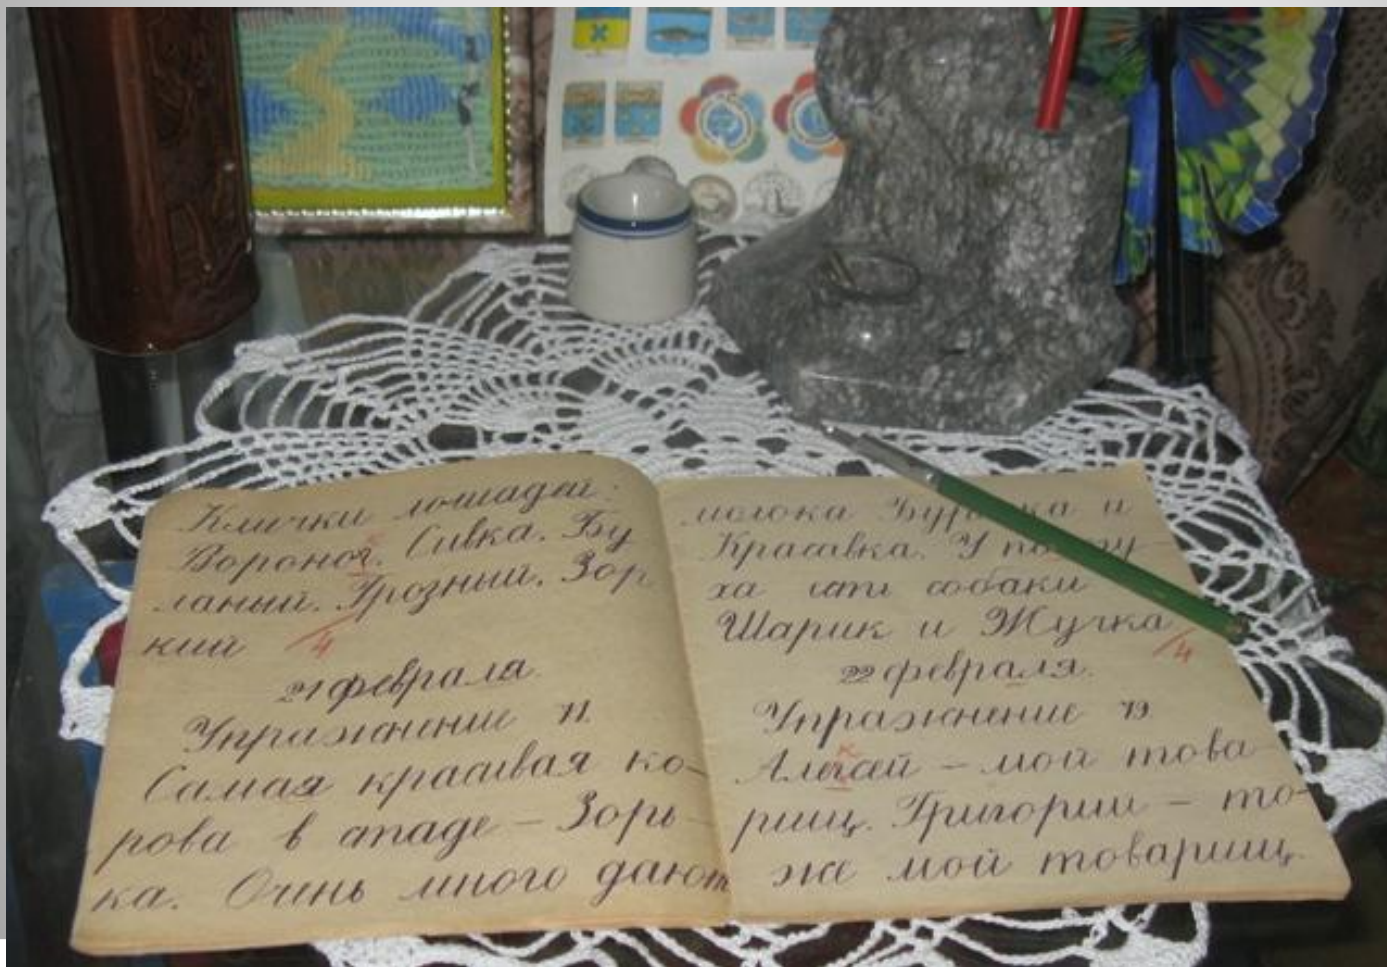 Клички лошадей:
к
Вороног. Сивка. Бу
ланый. Грозный. Зор
кий 4
21 февраля.
Упражнение
Самая красивая ко-
рова в стаде – Зорь-
ка. Очень много дают
молока и
Красавка. У
ха есть собаки
Шарик и Жучка 4
22 февраля.
Упражнение 79.
к
Алегсей – мой това
рищ. Григорий – то-
же мой товарищ.